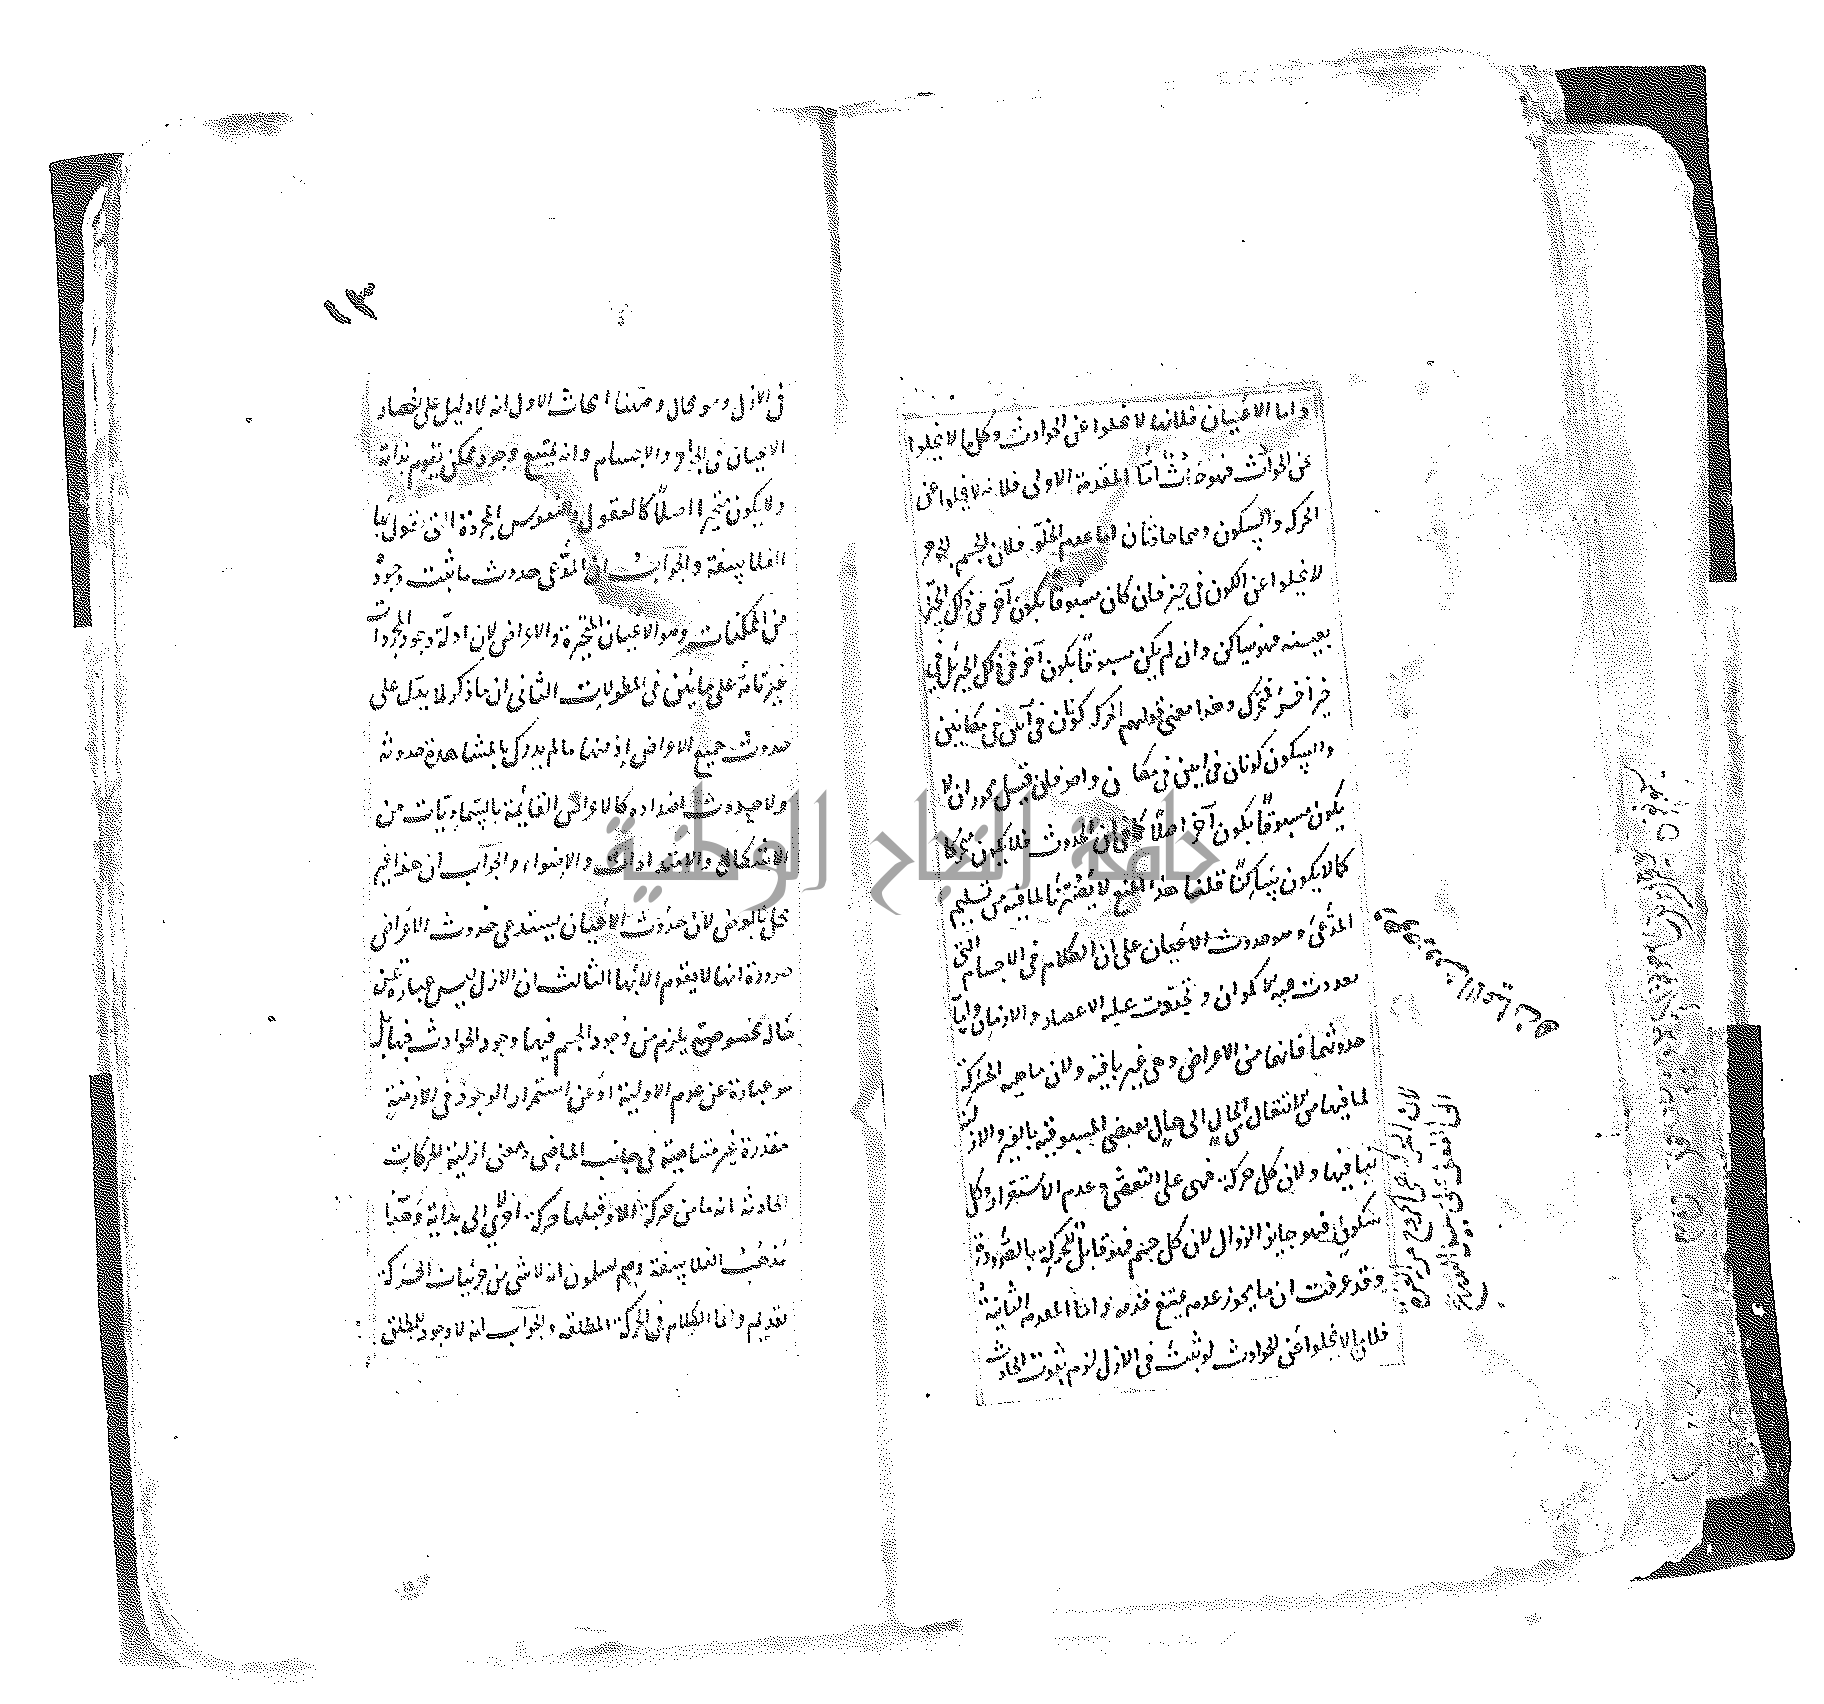 واما الاعيان فلانها لا تخلوا عن الحوادث وكل ما لا يخلوا
عن الحوادث فهو حادث اما المقدمة الاولى فلانه لا يخلوا عن
الحركة والسكون وهما حادثان اما عدم الخلو فلان الجسم والجوهر
لا يخلوا عن الكون فى حيز فان كان مسبوقا بكون آخر فى ذلك الحيز
بعينه فهو ساكن وان لم يكن مسبوقا بكون آخر فى ذلك الحيز بل فى
حيز آخر فمتحرك وهذا معنى قولهم الحركة كونان فى آنين فى مكانين
والسكون كونان فى آنين فى مكان واحد فان قيل يجوز ان لا
يكون مسبوقا بكون آخر اصلا كما فى آن الحدوث فلا يكون متحركا
كما لا يكون ساكنا قلنا هذا المنع لا يضرنا لما فيه من تسليم
المدعى وهو حدوث الاعيان على ان الكلام فى الاجسام التى
تعددت فيها الاكوان وتجددت عليه الاعصار والازمان واما
حدوثهما فانهما من الاعراض وهى غير باقية ولان ماهية الحركة
لما فيها من الانتقال من حال الى حال تقتضى المسبوقية بالغير والازلية
تنافيها ولان كل حركة فهى على التقضى وعدم الاستقرار وكل
سكون فهو جايز الزوال لان كل جسم فهو قابل للحركة بالضرورة
وقد عرفت ان ما يجوز عدمه يمتنع قدمه واما المقدمة الثانية
فلان ما لا يخلوا عن الحوادث لو ثبت فى الازل لزم ثبوت الحادث
١٣
فى الازل وهو محال وههنا ابحاث الاول انه لا دليل على انحصار
الاعيان فى الجواهر والاجسام وانه يمتنع وجود ممكن يقوم بذاته
ولا يكون متحيزا اصلا كالعقول والنفوس المجردة التى تقول بها
الفلاسفة والجواب ان المدعى حدوث ما ثبت وجوده
من الممكنات وهو الاعيان المتحيزة والاعراض لان ادلة وجود المجردات
غير تامة على ما بين فى المطولات الثانى ان ما ذكر لا يدل على
حدوث جميع الاعراض اذ منها ما لم يدرك بالمشاهدة حدوثه
ولا حدوث اضداده كالاعراض القائمة بالسماويات من
الاشكال والامتدادات والاضواء والجواب ان هذا غير
مخل بالغرض لان حدوث الاعيان يستدعى حدوث الاعراض
ضرورة انها لا يقوم الا بها الثالث ان الازل ليس عبارة عن
حالة مخصوصة يلزم من وجود الجسم فيها وجود الحوادث فيها بل
هو عبارة عن عدم الاولية او عن استمرار الوجود فى الازمنة
مقدرة غير متناهية فى جانب الماضى ومعنى ازلية الحركات
الحادثة انه ما من حركة الا وقبلها حركة اخرى لا الى بداية وهذا
مذهب الفلاسفة وهم يسلمون انه لا شى من جزئيات الحركة
بقديم وانما الكلام فى الحركة المطلقة والجواب انه لا وجود للمطلق
جامعة النجاح الوطنية